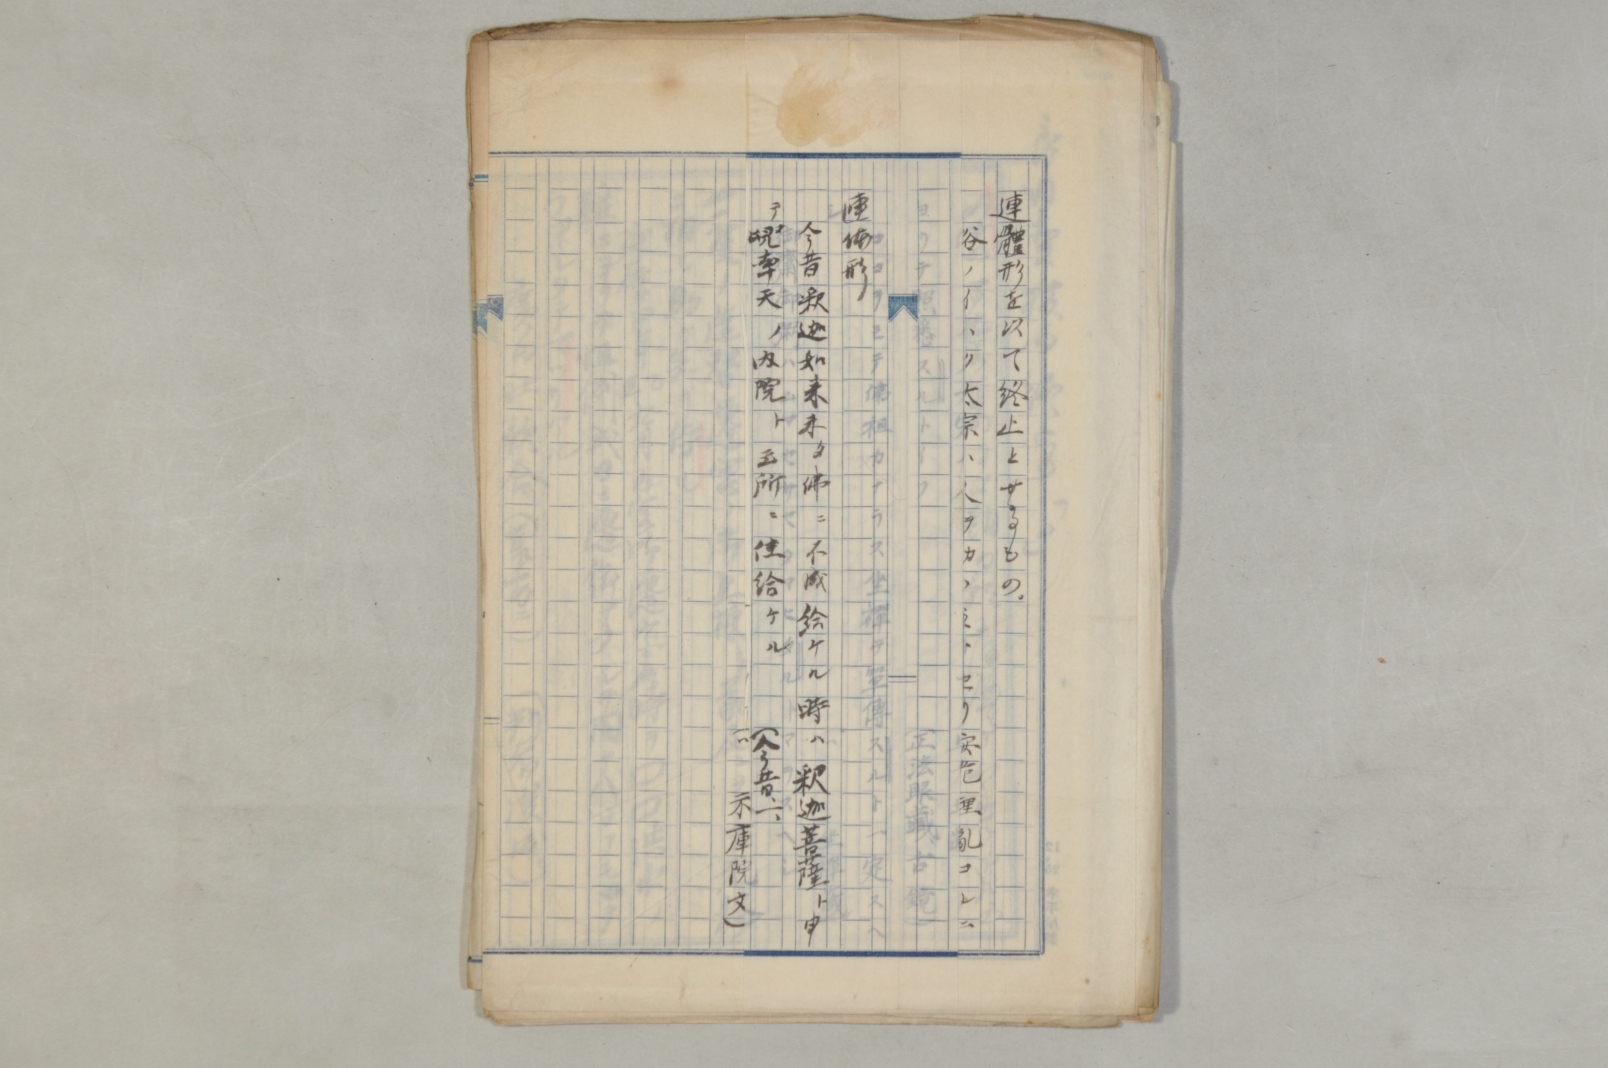 連體形を以て終止とせるもの。
谷ノイハク太宗ハ人ヲカヽミトセリ安危理亂コレニ
連体形
今昔釈迦如来未タ佛ニ不成給ケル時ハ釈迦菩薩ト申
テ兜率天ノ内院ト云所ニ住給ケル
(今昔、一、
示庫院文)